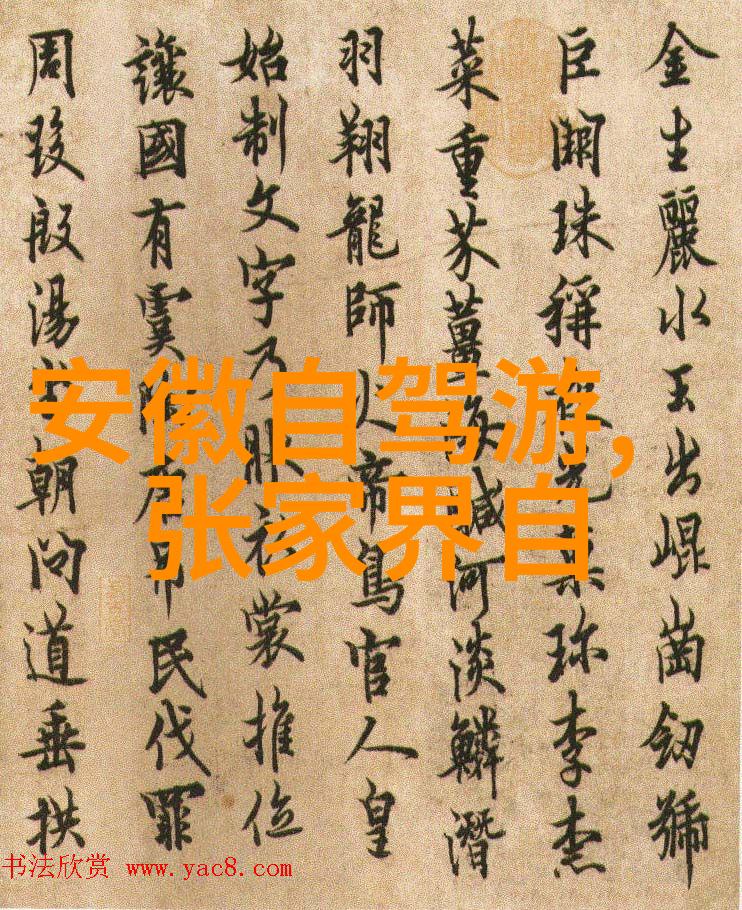 金生麗水玉出崐崗劒號
巨闕珠稱夜光菓珎李柰
菜重芥薑海鹹河淡鱗潛
羽翔龍師火帝鳥官人皇
始制文字乃服衣裳推位
讓國有虞陶唐弔民伐罪
周發殷湯坐朝問道垂拱
安徽自驾游,
张家界自
书法欣赏 www.yac8.com